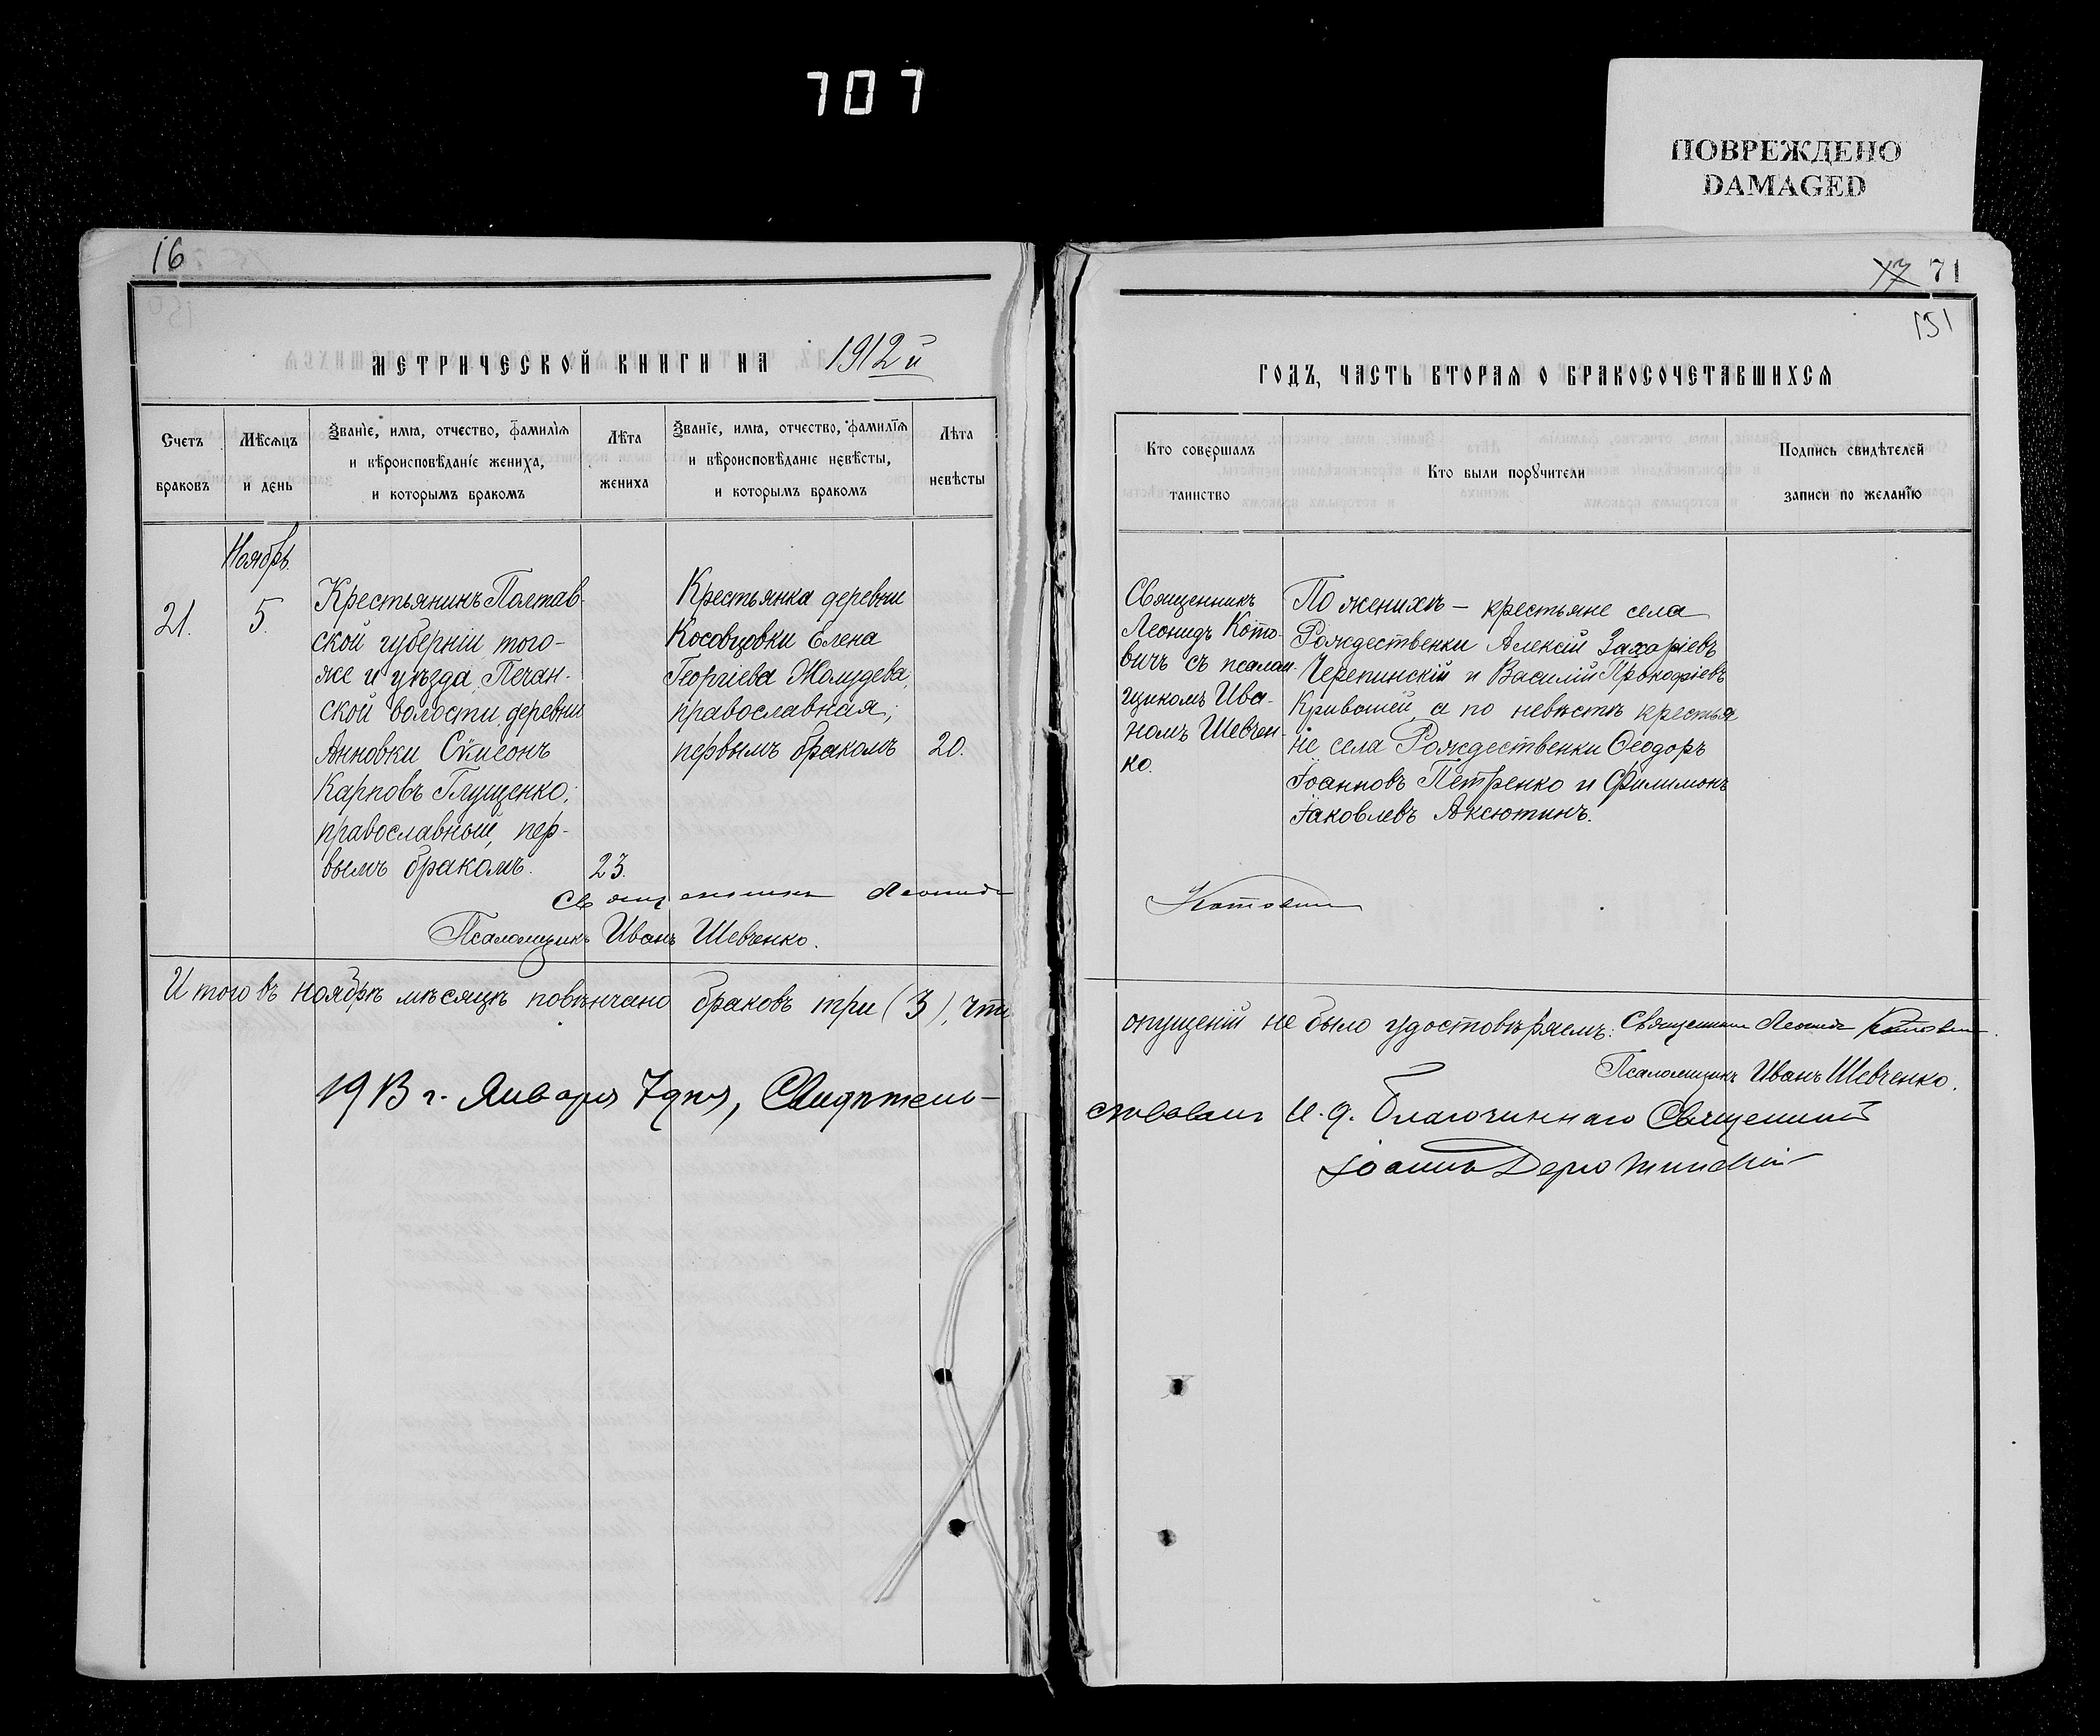 707
ПОВРЕЖДЕНО
DAMAGED
16
МЕТРИЧЕСКОЙ КНИГИ НА 1912 й
Счетъ браковъ
Мѣсяцъ и день
Званіе, имя, отчество, фамилія
и вѣроисповѣданіе жениха,
и которымъ бракомъ
Лѣта жениха
Званіе, имя, отчество, фамилія
и вѣроисповѣданіе невѣсты,
и которымъ бракомъ
Лѣта невѣсты
Ноябрь.
21.
5.
Крестьянинъ Полтав-
ской губерніи того-
же и уѣзда, Печан-
ской волости, деревни
Анновки Сѵмеонъ
Карповъ Глущенко,
православный, пер-
вымъ бракомъ.
23.
Крестьянка деревни
Косовцовки Елена
Георгіева Жолудева,
православная,
первымъ бракомъ
20.
Священникъ Леонидъ
Псаломщикъ Иванъ Шевченко.
Итого въ ноябрѣ мѣсяцѣ повѣнчано браковъ три (3), что
1913 г. Января 7 дня, Свидѣтель-
17 71
151
ГОДЪ, ЧАСТЬ ВТОРАЯ О БРАКОСОЧЕТАВШИХСЯ
Кто совершалъ
таинство
Кто были порꙋчители
Подпись свидѣтелей
записи по желанію
Священникъ
Леонидъ Кото-
вичъ съ псалом-
щикомъ Ива-
номъ Шевчен-
ко.
По женихѣ – крестьяне села
Рождественки Алексій Захаріевъ
Черепинскій и Василій Прокофіевъ
Кривошей а по невѣстѣ крестья
не села Рождественки Ѳеодоръ
Іоанновъ Петренко и Филимонъ
Іаковлевъ Аксютинъ.
Котовичъ
опущеній не было удостовѣряемъ: Священникъ Леонидъ Котовичъ.
Псаломщикъ Иванъ Шевченко.
ствовалъ И. д. Благочиннаго Священникъ
Іоаннъ